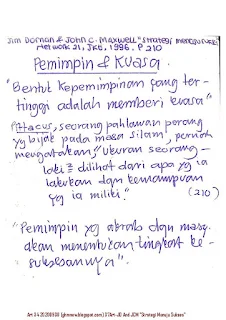 Jim Dornan & John C. Maxwell "Strategi menuju sukses"
Network 21, JKT, 1996. P 210
Pemimpin & Kuasa.
"Bentuk kepemimpinan yang ter-
tinggi adalah memberi kuasa"
Pitacus, seorang pahlawan perang
yg bijak pada masa silam, pernah
mengatakan, "ukuran seorang
laki2 dilihat dari apa yg ia
lakukan dgn kemampuan
yg ia miliki." (210)
"Pemimpin yg akrab dgn
akan menentukan tingkat ke-
suksesannya".
Art 3.4 20200908 [ghnnew.blogspot.com] STArt-JD And JCM "Strategi Menuju Sukses"